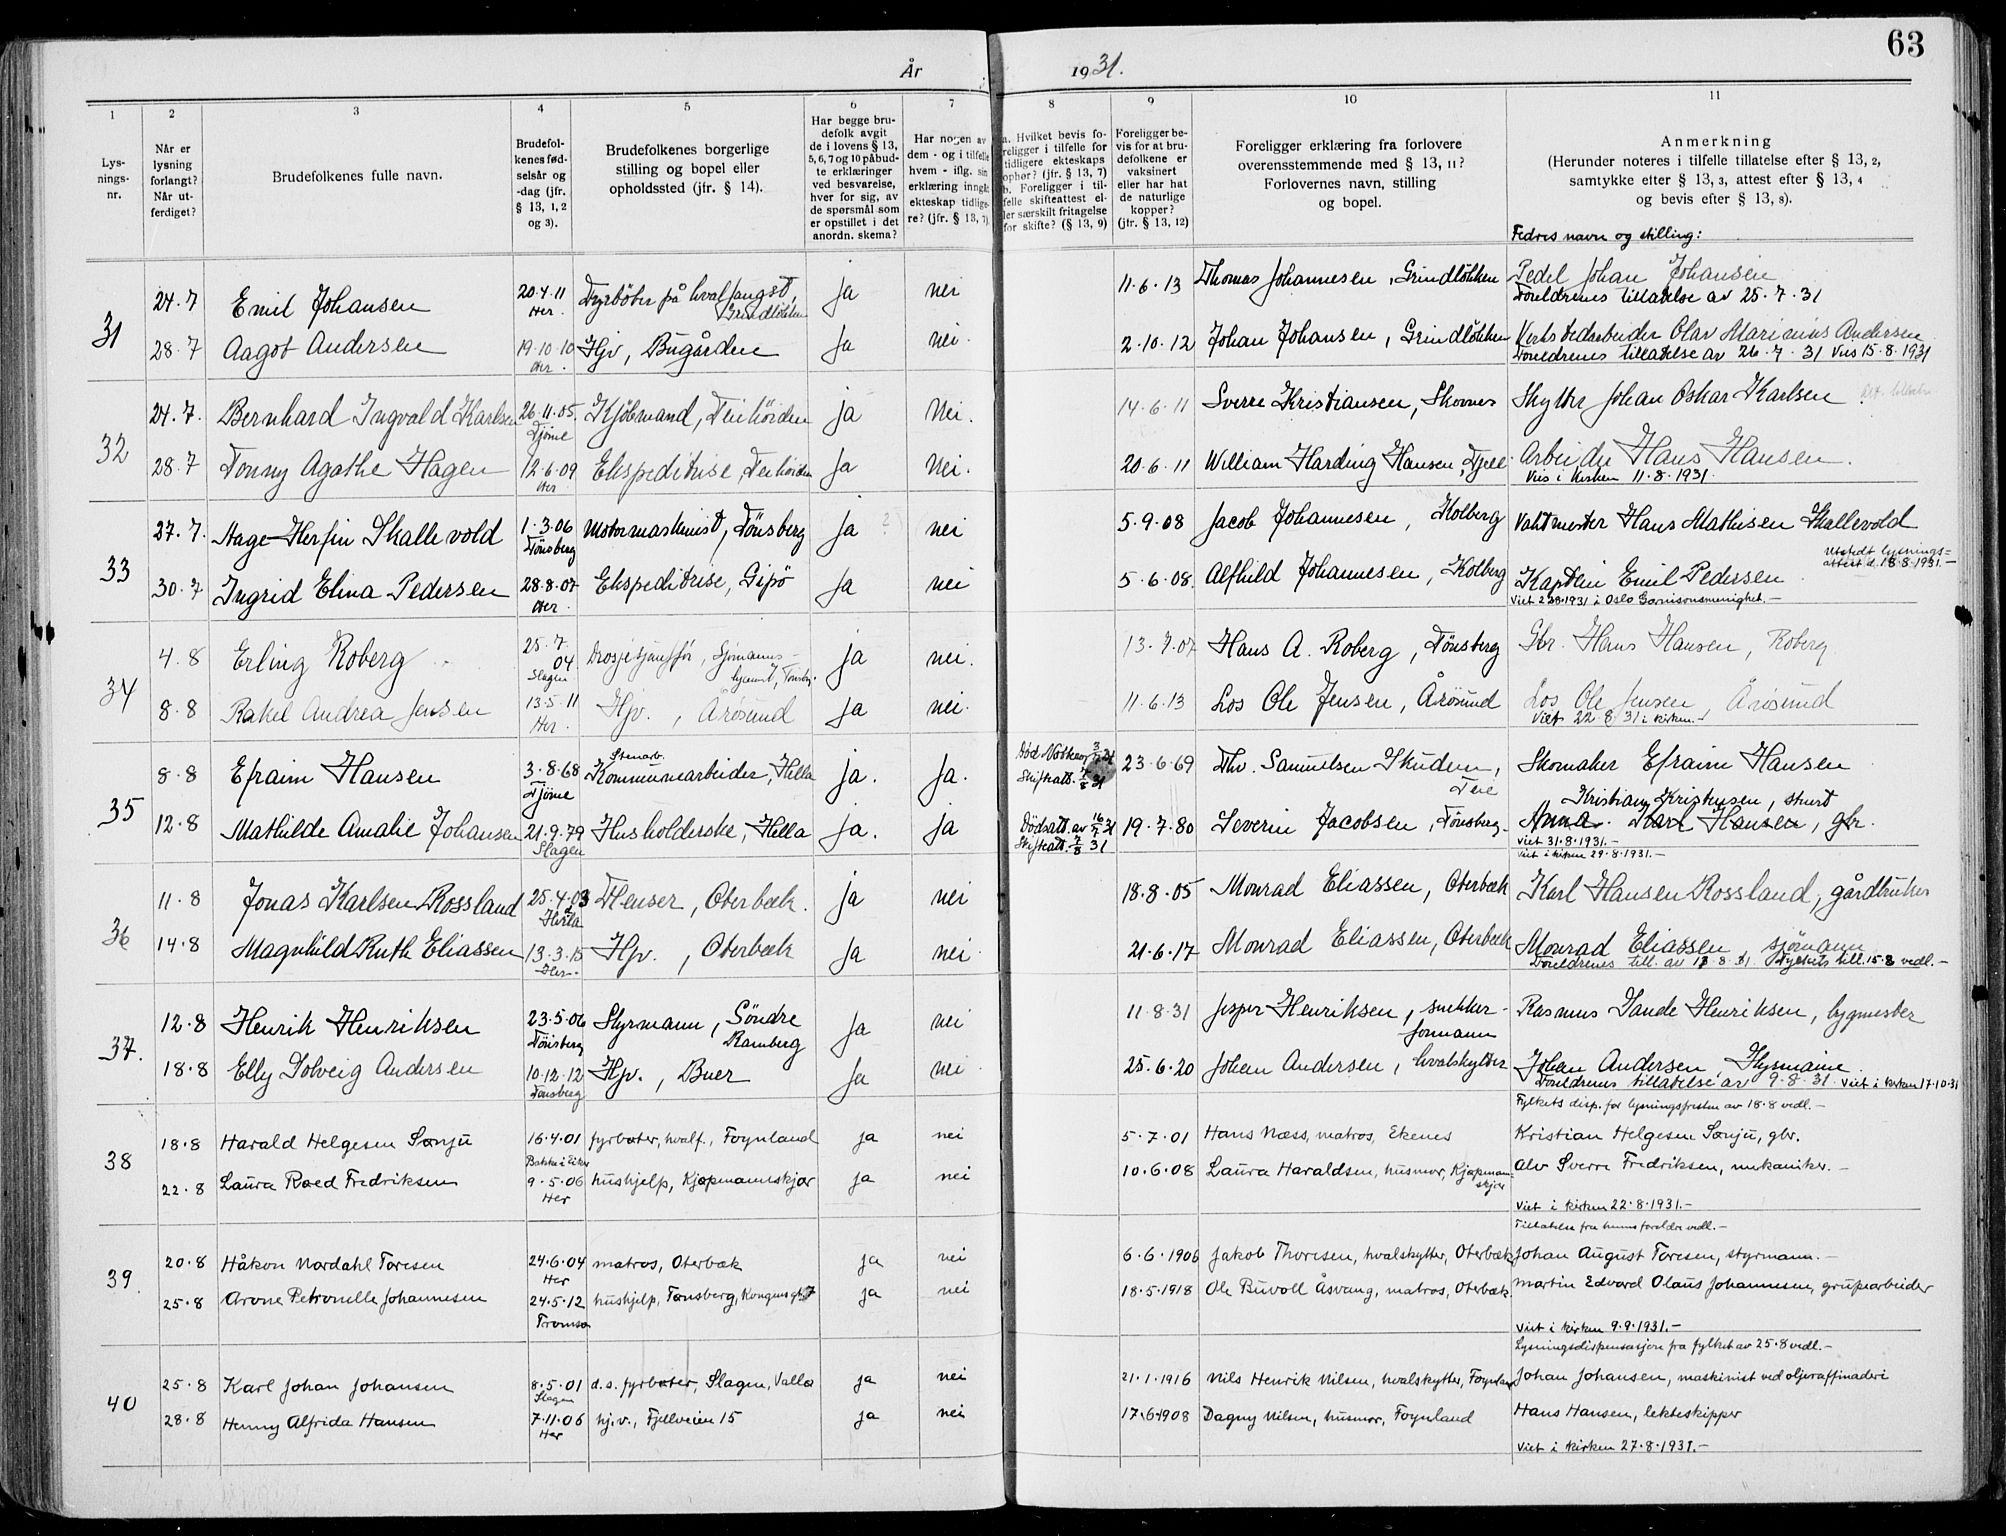 63
År 1931.
1 2 3 4 5 6 7 8 9 10 11
Lys-
nings-
nr.
Når er
lysning
forlangt?
Når ut-
ferdiget?
Brudefolkenes fulle navn.
Brudefol-
kenes fød-
selsår og
-dag (jfr.
§ 13, 1, 2
og 3).
Brudefolkenes borgerlige
stilling og bopel eller
opholdssted (jfr. § 14).
Har begge bru-
defolk avgit
de i lovens § 13,
5, 6, 7 og 10 påbud-
te erklæringer
ved besvarelse,
hver for sig, av
de spørsmål som
er opstillet i det
anordn. skema?
Har nogen av
dem - og i tilfelle
hvem - iflg. sin
erklæring inngått
ekteskap tidlige-
re? (jfr. § 13, 7)
a. Hvilket bevis fo-
religger i tilfelle for
tidligere ekteskaps
ophør? (jfr. § 13, 7)
b. Foreligger i til-
felle skifteattest el-
ler særskilt fritagelse
for skifte? (§ 13, 9)
Foreligger be-
vis for at bru-
defolkene er
vaksinert
eller har hat
de naturlige
kopper?
(jfr. § 13, 12)
Foreligger erklæring fra forlovere
overensstemmende med § 13, 11?
Forlovernes navn, stilling
og bopel.
Anmerkning
(Herunder noteres i tilfelle tillatelse efter § 13, 2,
samtykke efter § 13, 3, attest efter § 13, 4
og bevis efter § 13, 8).
Fedres navn og stilling:
31
24.7 Emil Johansen 20.4.11 Fyrböter på hvalfangst, ja nei 11.6.13 Thomas Johannesen, Grindløkken Pedel Johan Johansen
Her. Grindløkken Foreldrenes tillatelse av 25.7.31
28.7 Aagot Andersen 19.10.10 Hjv, Bugården ja nei. 2.10.12 Johan Johansen, Grindløkken Verkstedarbeider Olav Marinius Andersen
Her. Foreldrenes tillatelse av 26.7.31 Vies 15.8.1931
32
24.7. Bernhard Ingvald Karlsen 26.11.05 Kjöbmand, Teihöiden ja Nei. 14.6.11 Sverre Kristiansen, Skovnes Skytter Johan Oskar Karlsen
Tjöme
28.7 Tonny Agathe Hagen 12.6.09 Ekspeditrise, Teihöiden ja Nei. 20.6.11 William Harding Hansen, Tjell. Arbeider Hans Hansen.
Her Vies i kirken 11.8.1931.
33
27.7. Aage Herfin Skallevold 1.3.06 Motormaskinist, Tönsberg ja ? nei 5.9.08 Jacob Johannesen, Kolberg Vaktmester Hans Mathisen Skallevold
Tönsberg Utstedt lysnings=
attest d. 18.8.1931.-
30.7 Ingrid Elina Pedersen 28.8.07 Ekspeditrise, Gipö ja nei 5.6.08. Alfhild Johannesen, Kolberg Kaptein Emil Pedersen
Her. Viet 22.8.1931 i Oslo Garnisonsmenighet.-
34
4.8 Erling Roberg 25.7 Drosjesjauffør, Sjömanns- ja nei. 13.7.07 Hans A. Roberg, Tönsberg Gbr. Hans Hansen, Roberg
04
Slagen
8.8 Rakel Andrea Jensen 13.5.11 Hjv., Årösund ja nei. 11.6.13 Los Ole Jensen, Årösund Los Ole Jensen, Årösund
Her. Viet 22.8.31 i kirken.-
35
8.8 Efraim Hansen 3.8.68 Stenarb. Kommunearbeider, Hella ja. ja. 23.6.69 Thv. Samuelsen Skuden, Skomaker Efraim Hansen
Tjöme Skifteatt. 7/8 31 Teie
Kristian Kristensen, skurt
12.8 Mathilde Amalie Johansen 21.9.79 Husholderske, Hella ja. ja Dødsatt. av 16/7 31 19.7.80 Severin Jacobsen, Tönsberg. Anna. Karl Hansen, gbr.
Slagen Skifteatt. 7/8 31 Viet 31.8.1931.-
Viet i kirken 29.8.1931.-
36
11.8 Jonas Karlsen Rossland 25.4.03 Stenser, Oterbæk. ja nei 18.8.05 Monrad Eliassen, Oterbæk Karl Hansen Rossland, gårdbruker
Herla
14.8 Magnhild Ruth Eliassen 13.3.15 Hjv., Oterbæk ja nei 21.6.17 Monrad Eliassen, Oterbæk Monrad Eliassen, sjömann
Her. Foreldrenes till. av 13.8.31. Fylkets till. 15.8 vedl.-
37.
12.8 Henrik Henriksen 23.5.06 Styrmann, Söndre ja nei 11.8.31 Jesper Henriksen, snekker- Rasmus Sande Henriksen, bygmester
Tönsberg Ramberg formann
18.8 Elly Solveig Andersen 10.12.12 Hjv., Buer ja nei 25.6.20 Johan Andersen, hvalskytter Johan Andersen, Hysmaine.
Tønsberg Foreldrenes tillatelse av 9.8.31. Viet i kirken 17.10.31
Fylkets disp. for lysningsfristen av 18.8 vedl.-
38
18.8 Harald Helgesen Sønju 16.4.01 fyrbøter, hvalf., Føynland ja nei 5.7.01 Hans Næss, matros, Ekenes Kristian Helgesen Sønju, gbr.
Bakke i Eiker
22.8 Laura Røed Fredriksen 9.5.06 hushjelp, Kjøpmannskjær ja nei 10.6.08 Laura Haraldsen, husmor, Kjøpmann- Alv Sverre Fredriksen, mekaniker.-
Her skjær
Viet i kirken 22.8.1931.-
Tillatelse fra hennes foreldre vedl.-
39
20.8 Håkon Nordahl Toresen 24.6.04 matros, Oterbæk ja nei 6.6.1906 Jakob Thoresen, hvalskytter, Oterbæk Johan August Toresen, styrmann.-
Her
25.8 Arone Petronelle Johannesen 24.5.12 hushjelp, Tønsberg, Kongens gt. 7 ja nei 18.5.1918 Ole Buvoll Åsvang, matros, Oterbæk Martin Edvard Olaus Johannesen, grubearbeider
Tromsø
Viet i kirken 9.9.1931.-
Lysningsdispensasjon fra fylket av 25.8 vedl.-
40
25.8 Karl Johan Johansen 8.5.01 d.s. fyrbøter, Slagen, Vallø ja nei 21.1.1916 Nils Henrik Nilsen, hvalskytter, Føynland Johan Johansen, maskinist ved oljeraffinaderi
Slagen
28.8 Henny Alfrida Hansen 7.11.06 hj.v., Fjellveien 15 ja nei 17.6.1908 Dagny Nilsen, husmor, Føynland Hans Hansen, lekteskipper
Her
Viet i kirken 27.8.1931.-